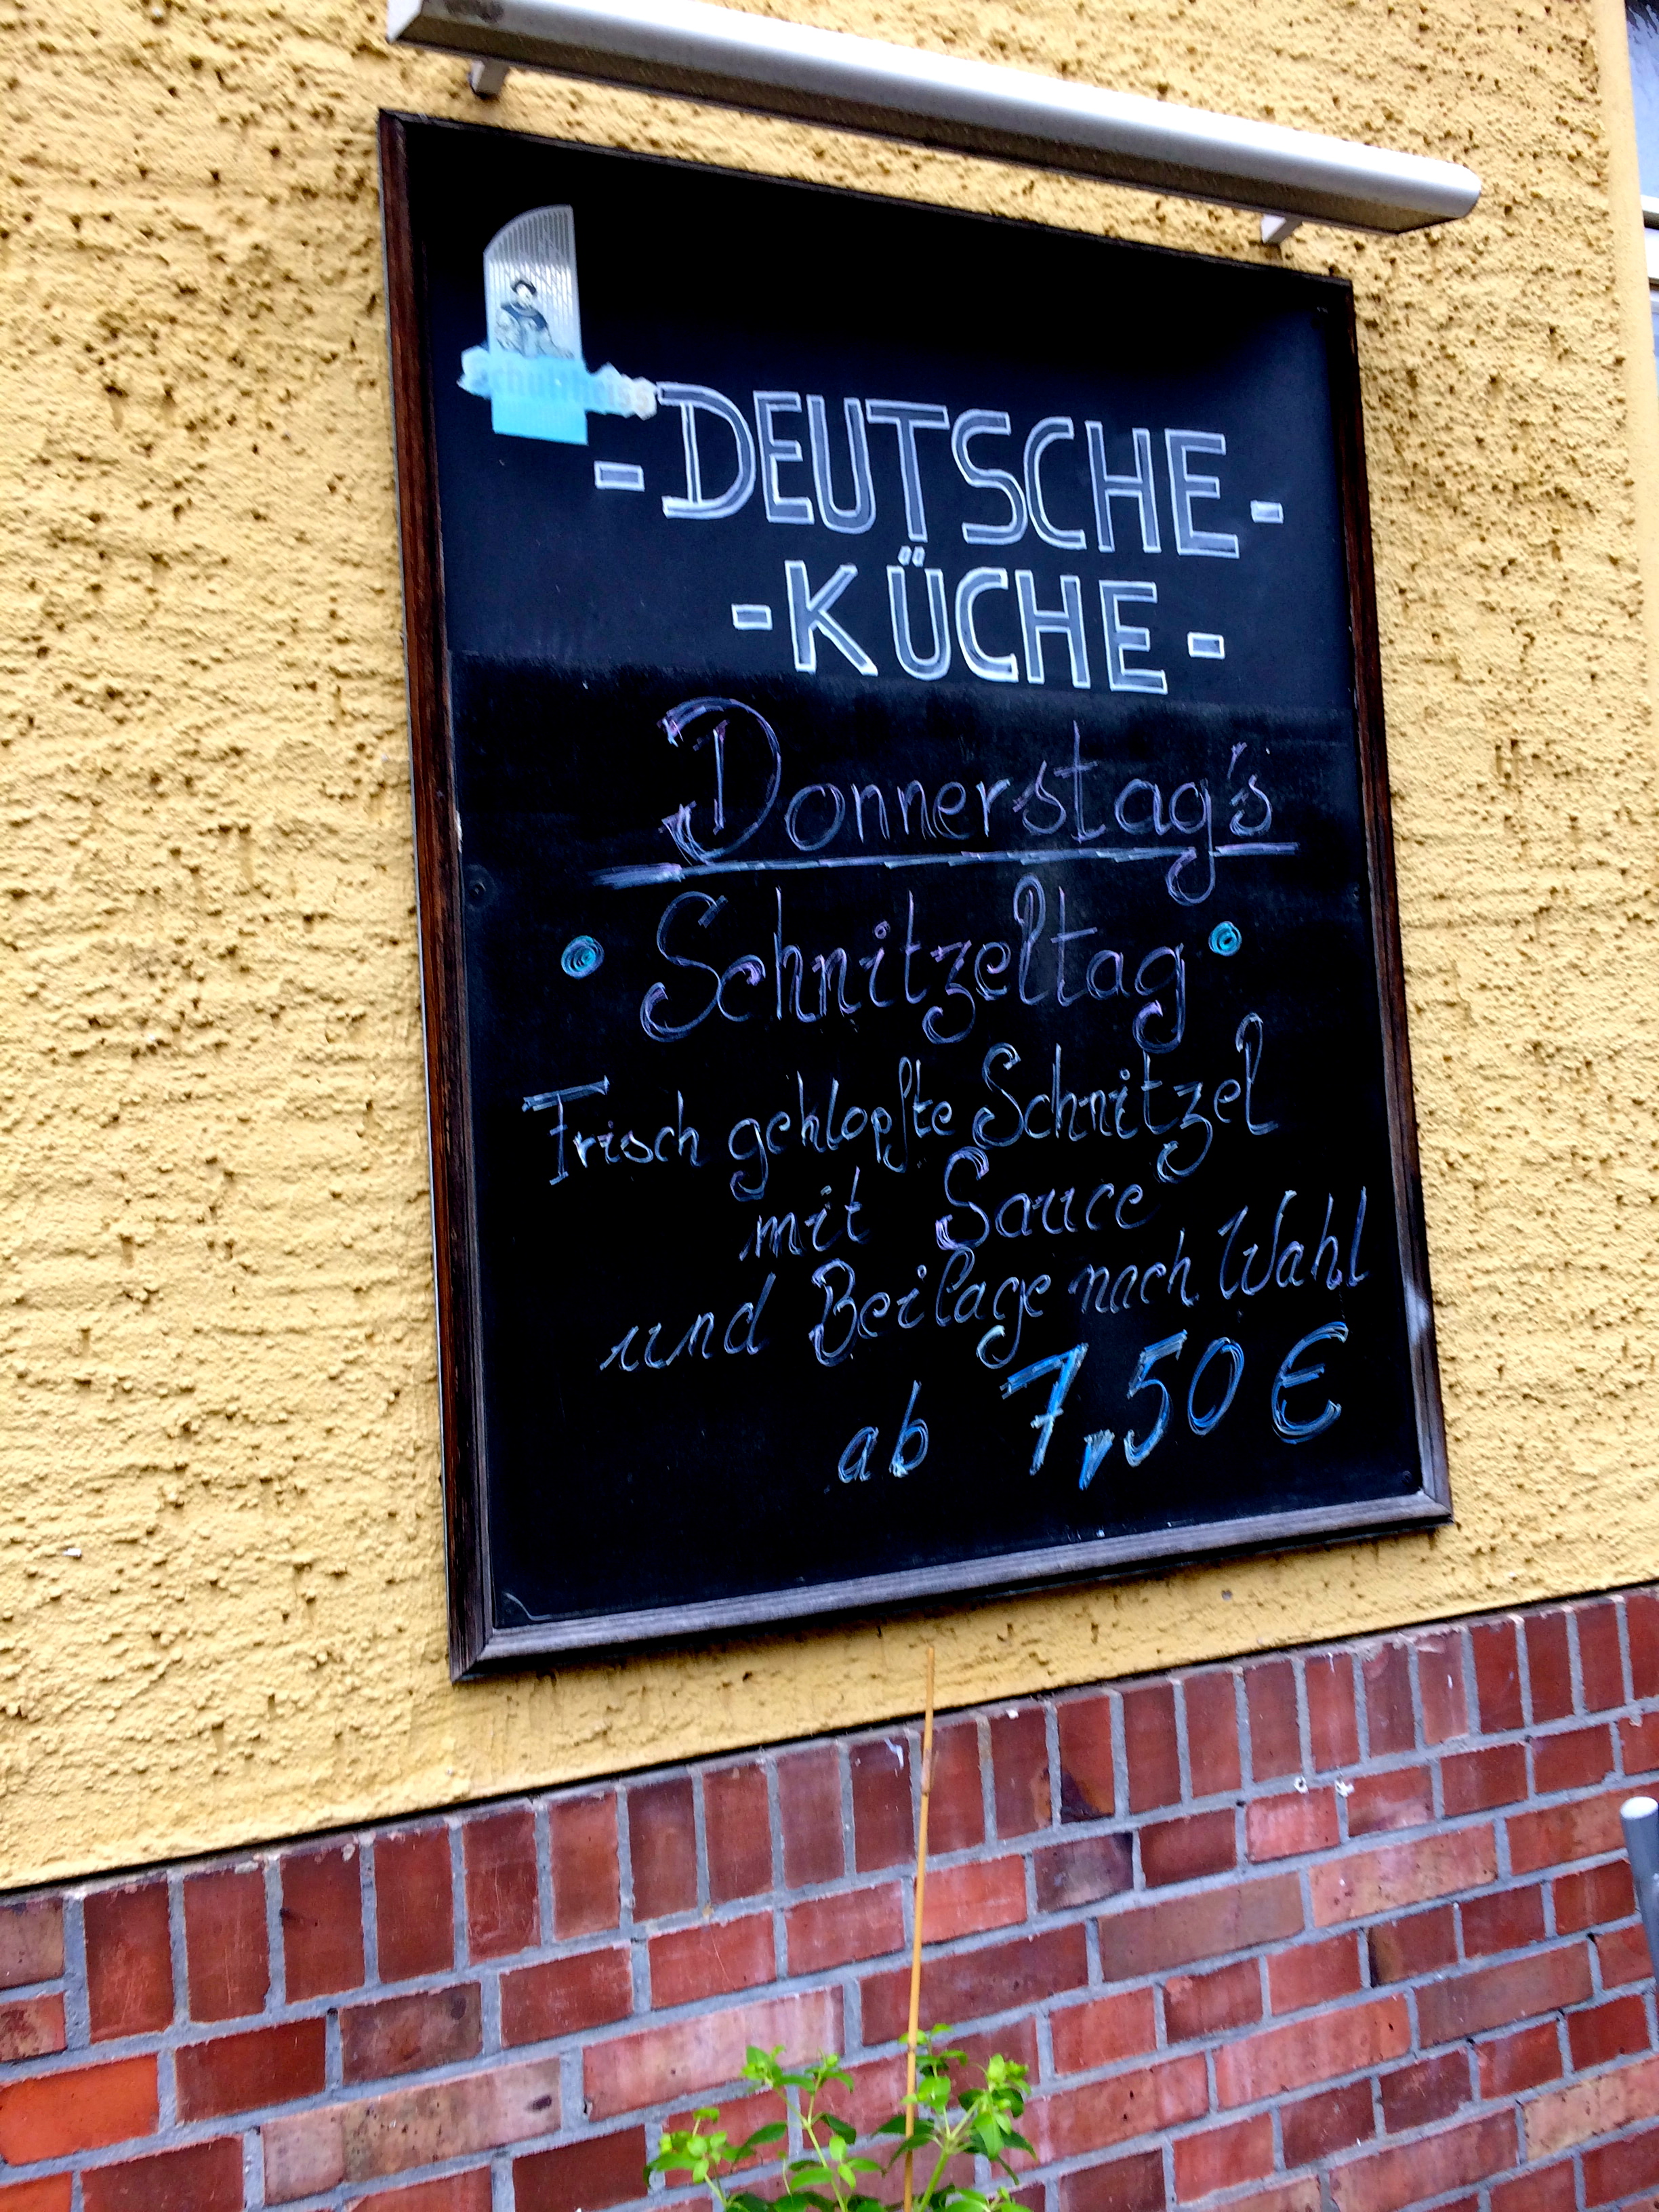 Schultheiss
- DEUTSCHE -
- KÜCHE -
Donnerstag's
• Schnitzeltag •
Frisch geklopfte Schnitzel
mit Sauce
und Beilage nach Wahl
ab 7,50 €